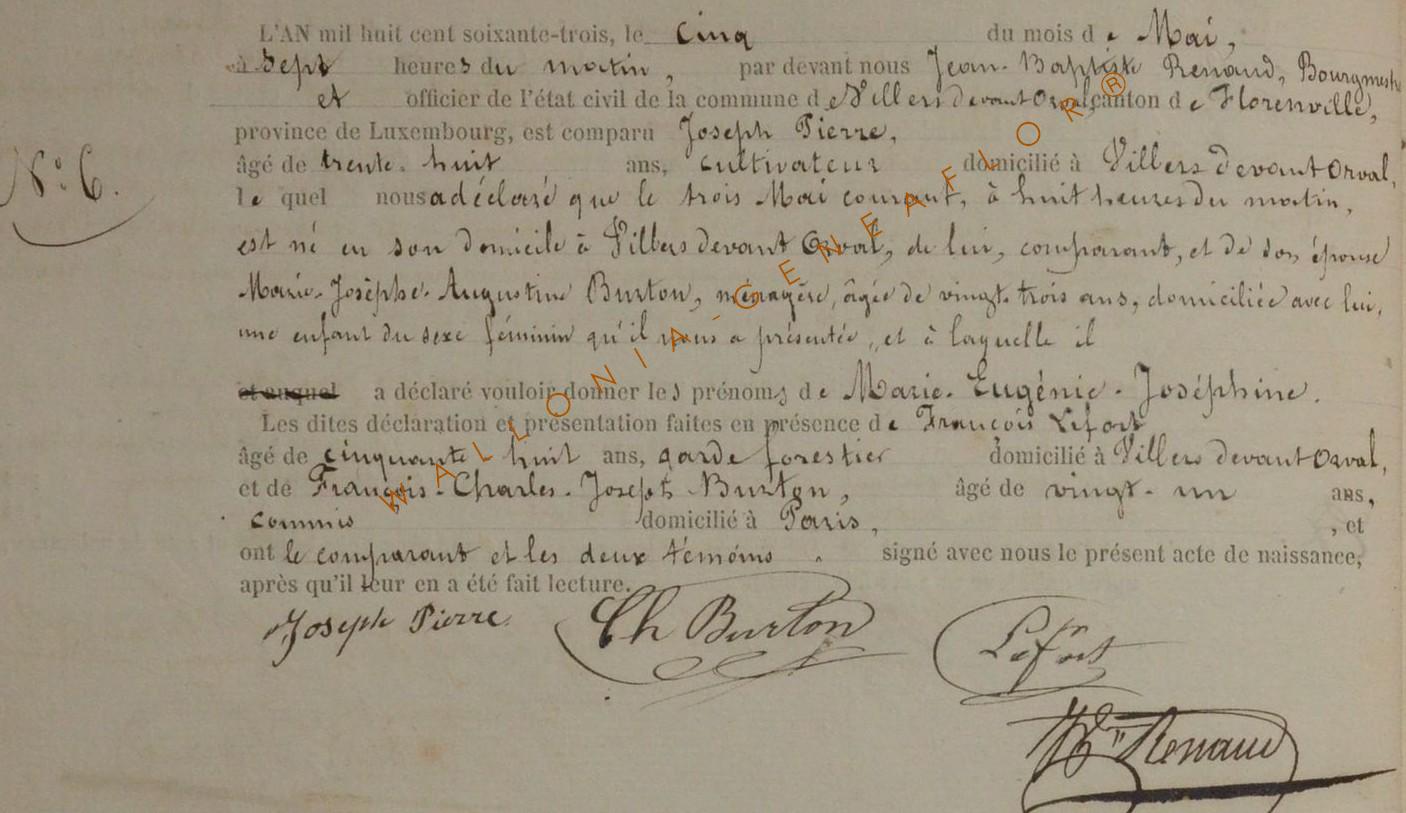 L'AN mil huit cent soixante-trois, le cinq du mois de Mai,
à sept heures du matin, par devant nous Jean-Baptiste Renaud, Bourgmestre
et officier de l'état civil de la commune de Villers devant Orval, canton de Florenville,
province de Luxembourg, est comparu Joseph Pierre,
N.º 6. âgé de trente-huit ans, cultivateur domicilié à Villers devant Orval,
lequel nous a déclaré que le trois Mai courant, à huit heures du matin,
est né en son domicile à Villers devant Orval, de lui, comparant, et de son épouse
Marie-Josèphe-Augustine Burton, ménagère, âgée de vingt-trois ans, domiciliée avec lui,
une enfant du sexe féminin qu'il nous a présentée, et à laquelle il
et auquel a déclaré vouloir donner les prénoms de Marie-Eugénie-Joséphine.
Les dites déclaration et présentation faites en présence de François Lefort
âgé de cinquante huit ans, garde forestier domicilié à Villers devant Orval,
et de François-Charles-Joseph Burton, âgé de vingt-un ans,
commis domicilié à Paris, , et
ont le comparant et les deux témoins. signé avec nous le présent acte de naissance,
après qu'il leur en a été fait lecture.
Joseph Pierre Ch Burton Lefort
Renaud
WALLONIA-GENEAFLOR®